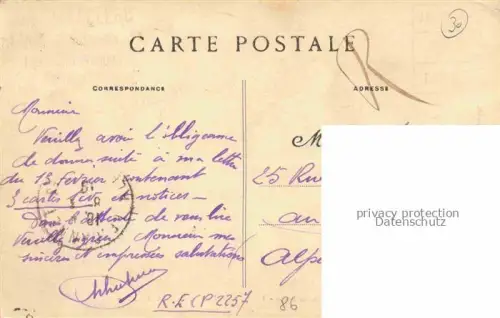 36
CARTE POSTALE
R
CORRESPONDANCE
ADRESSE
Monsieur
Veuillez avoir l'obligeance
de donner suite à ma lettre
du 13 février contenant
3 cartes et notices –
Dans l'attente de vous lire
Veuillez agréer Monsieur mes
sincères et empressées salutations
M
25 Ru
privacy protection
Datenschutz
an
Alpe
R.E CP 2257
86